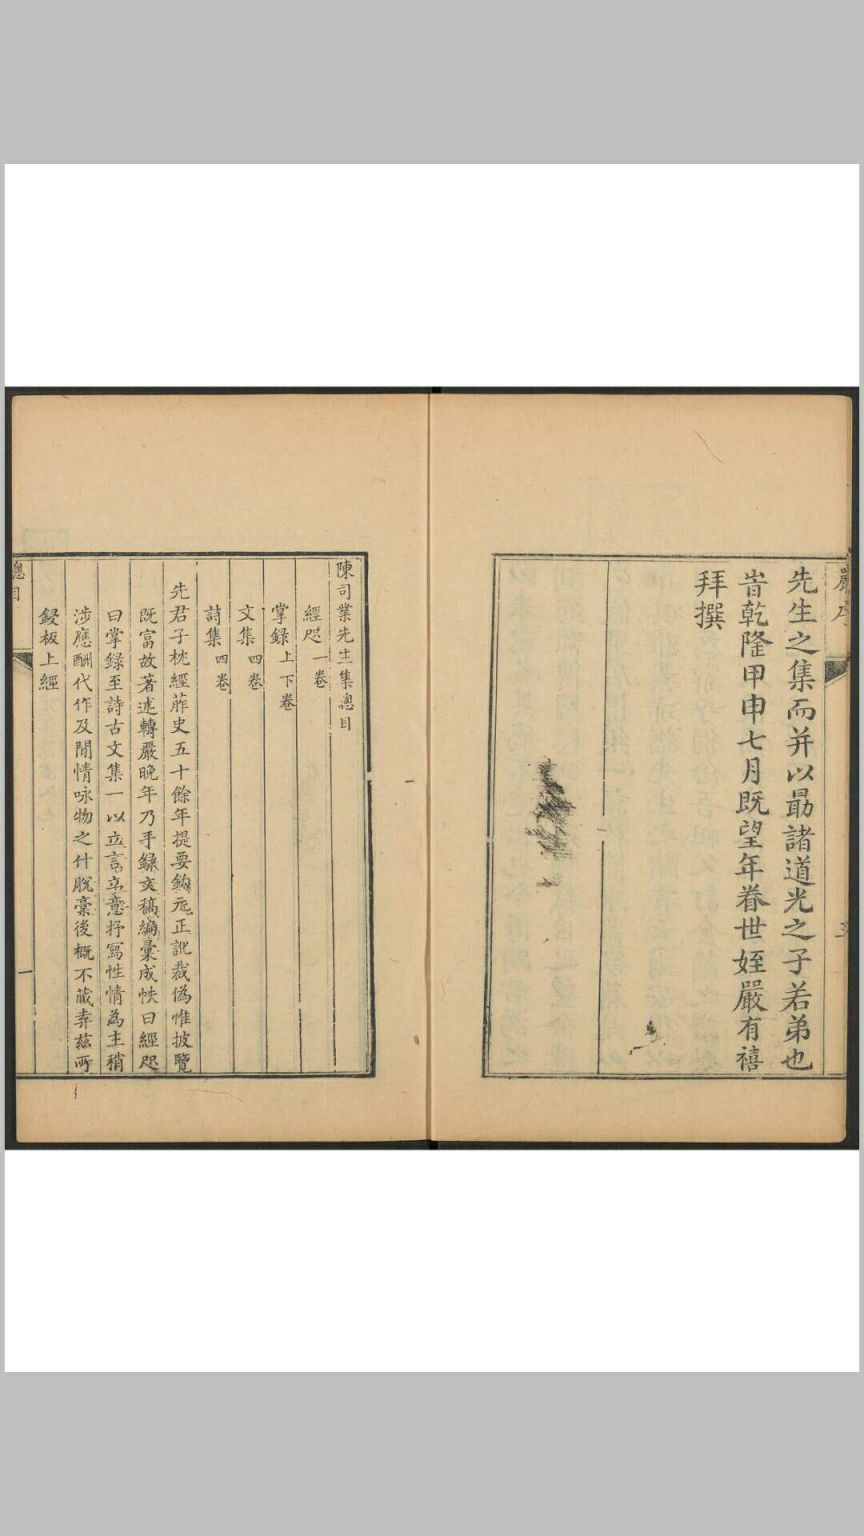 嚴序
先生之集而并以勗諸道光之子若弟也
旹乾隆甲申七月既望年眷世姪嚴有禧
拜撰
陳司業先生集總目
經咫一卷
掌錄上下卷
文集四卷
詩集四卷
先君子枕經葄史五十餘年提要鉤元正訛裁偽惟披覽
既富故著述轉嚴晚年乃手錄文稿編彙成帙曰經咫
曰掌錄至詩古文集一以立言立意抒寫性情為主稍
涉應酬代作及閒情咏物之什脫稾後概不藏弆茲所
鋟板上經
總目
一